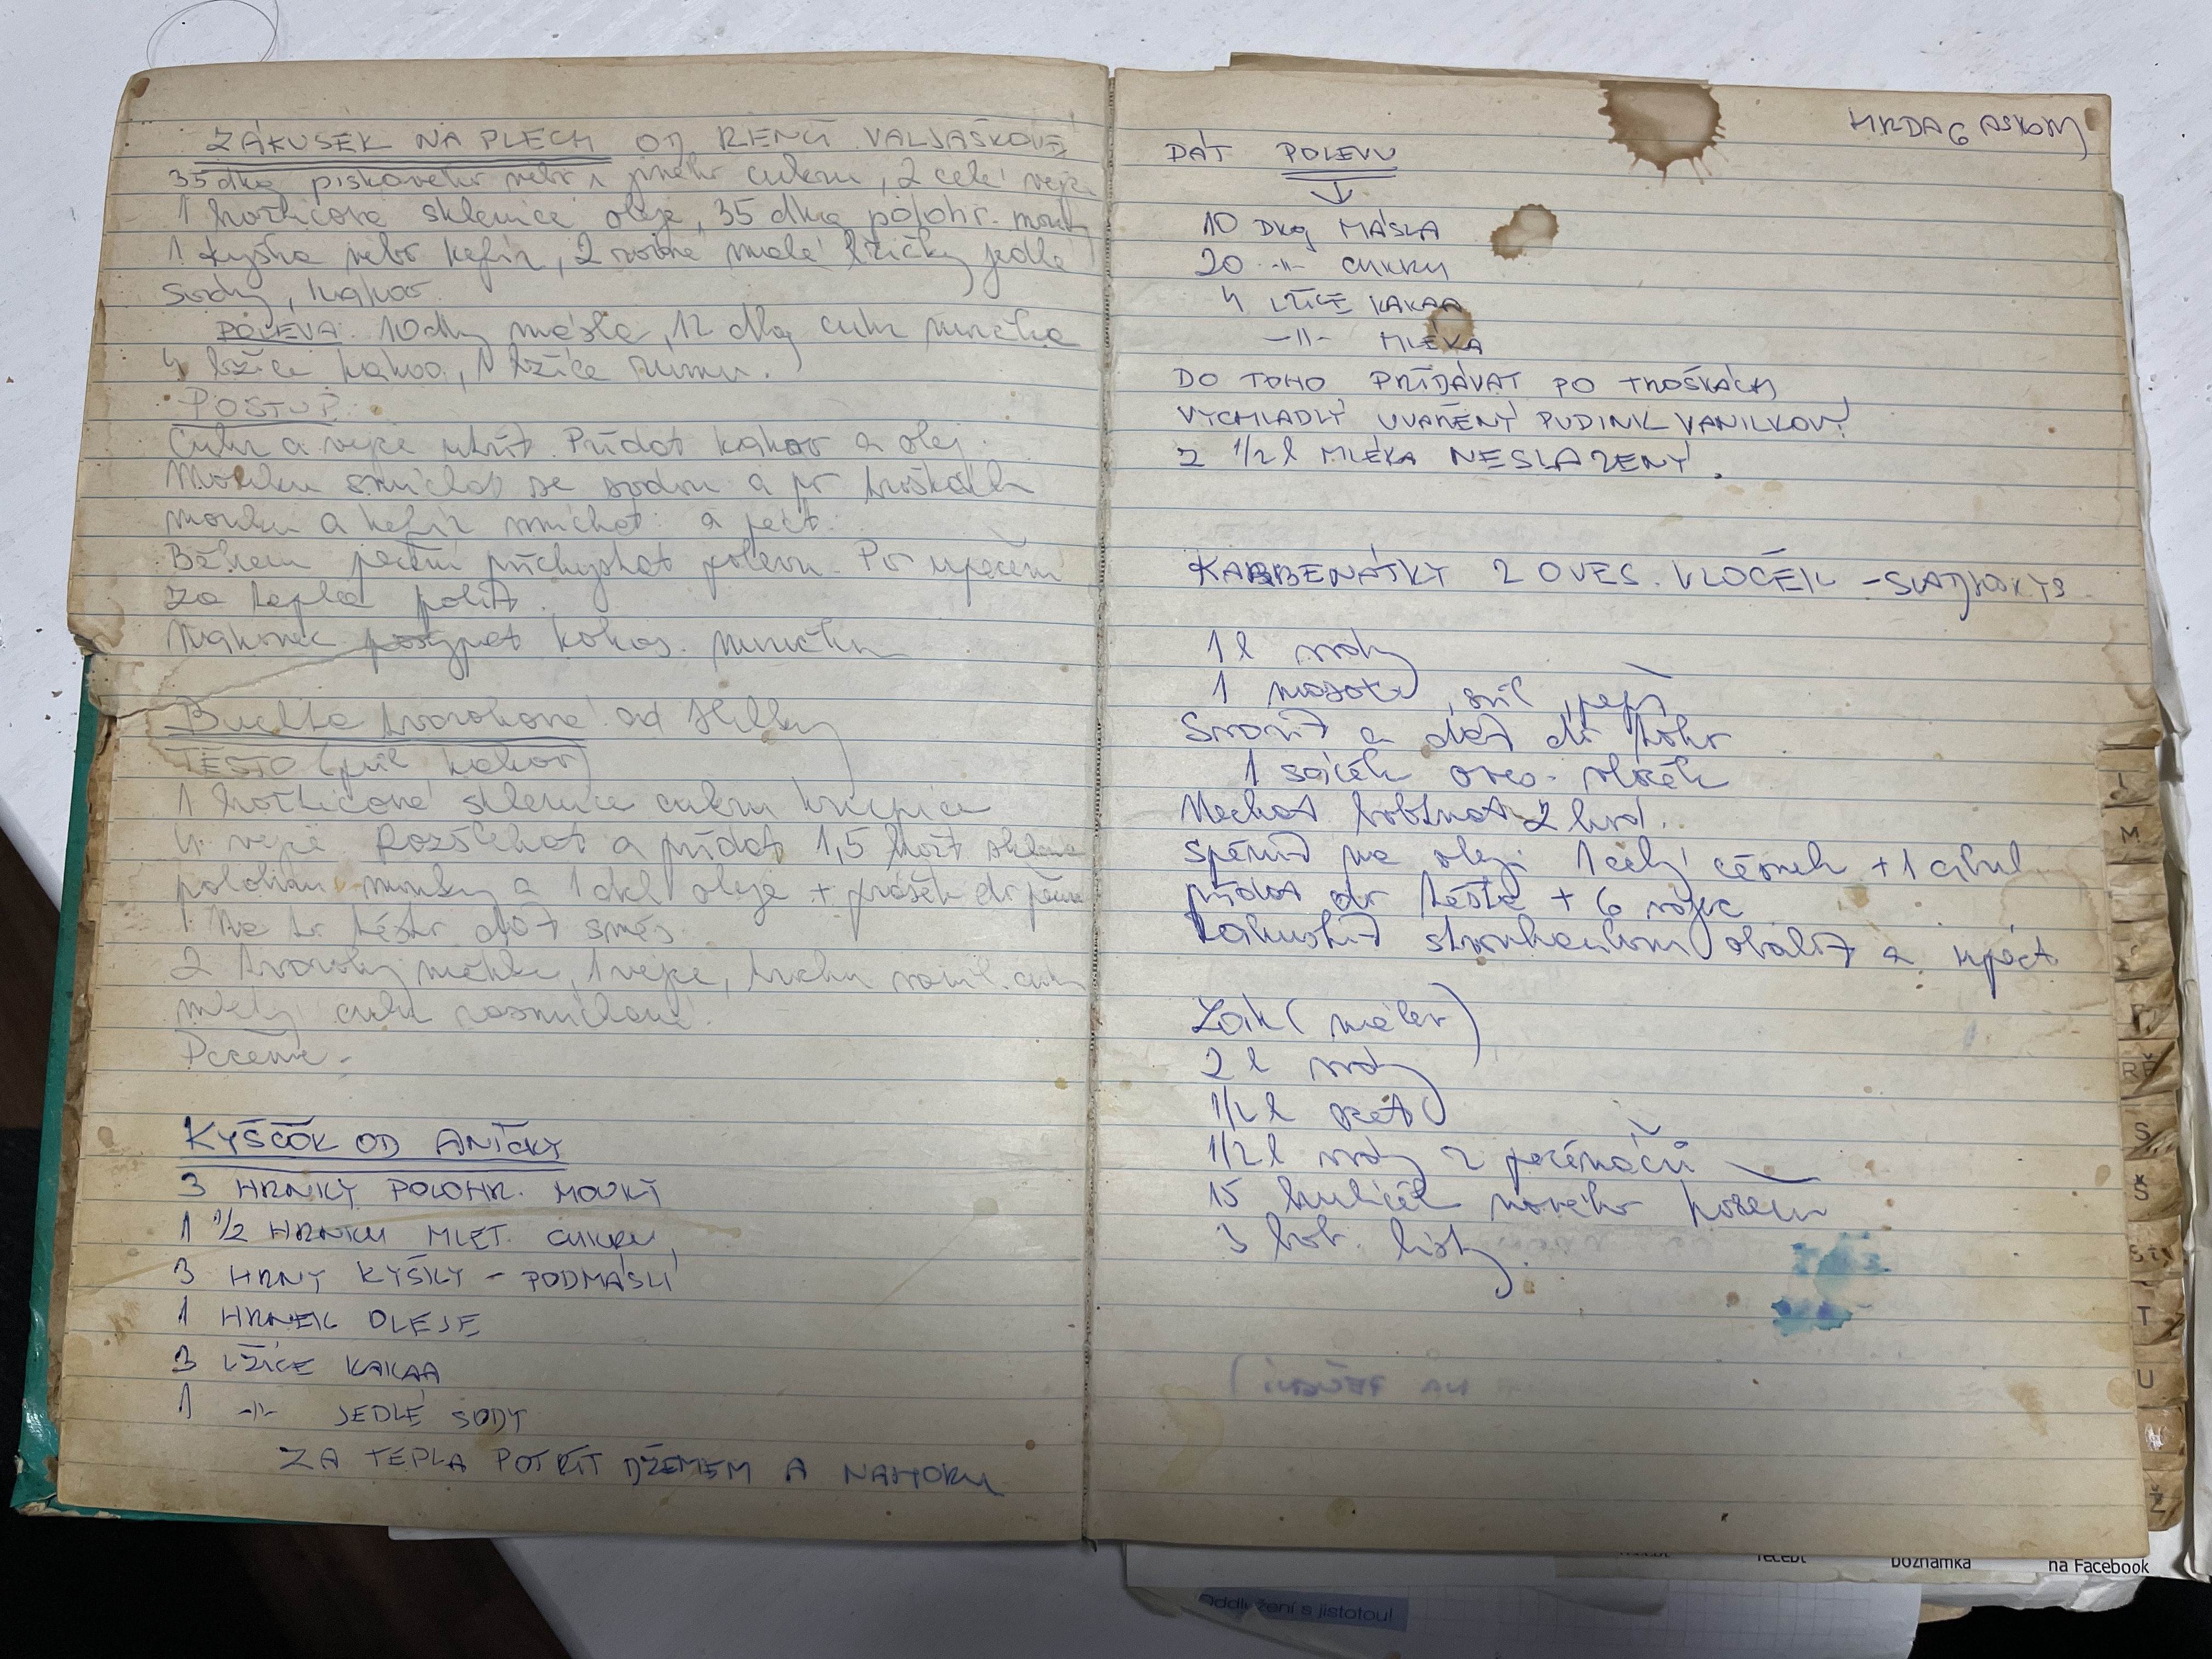 ZÁKUSEK NA PLECH OD RENČI VALJAŠKOVÉ
35 dkg pískového nebo mletého cukru, 2 celé vejce
1 hořčicová sklenice oleje, 35 dkg polohr. mouky
1 kyška nebo kefír, 2 malé lžičky jedlé
sody, kakao
POLEVA: 10 dkg másla, 12 dkg cukr moučka
4 lžíce kakao, 1 lžíce rumu.
POSTUP:
Cukr a vejce utřít. Přidat kakao a olej
Mouku smíchat se sodou a po troškách
mouku a kefír míchat a péct.
Během pečení přichystat polevu. Po upečení
za tepla polít.
Nakonec posypat kokos. moučkou
Buchta tvarohová od Helky
TĚSTO (jiné kakao)
1 hořčicové sklenice cukru krupice
4 vejce rozšlehat a přidat 1,5 hořč sklenice
polohrubé mouky a 1 dcl oleje + prášek do peč
Na to těsto dát směs:
2 tvarohy měkké, 1 vejce, trochu vanil. cukr
mletý cukr rozmícháme
Pečeme.
KYŠČOK OD ANIČKY
3 HRNKY POLOHR. MOUKY
1 1/2 HRNKU MLET. CUKRU
3 HRNKY KYŠKY - PODMÁSLÍ
1 HRNEK OLEJE
3 LŽÍCE KAKAA
1 -||- JEDLÉ SODY
ZA TEPLA POTŘÍT DŽEMEM A NAHORU
DÁT POLEVU
10 DKg MÁSLA
20 -||- CUKRU
4 LŽÍCE KAKAA
-||- MLÉKA
DO TOHO PŘIDÁVAT PO TROŠKÁCH
VYCHLADLÝ UVAŘENÝ PUDINK VANILKOVÝ
Z 1/2 l MLÉKA NESLAZENÝ.
KARBENÁTKY Z OVES. VLOČEK -
1 l vody
1 masox, sůl, pepř
Svařit a dát do toho
1 sáček oves. vloček
Nechat nabobtnat 2 hod.
Spěnit na oleji 1 celý česnek + 1 cibul
přidat do těsta + 6 vajec
Zahustit strouhankou, obalit a upéct
Zálk (nálev)
2 l vody
1/2 l octa
1/2 l vody z
15 kuliček nového koření
3 bob. listy.
L
M
S
Š
T
U
Ž
Poznámka
na Facebook